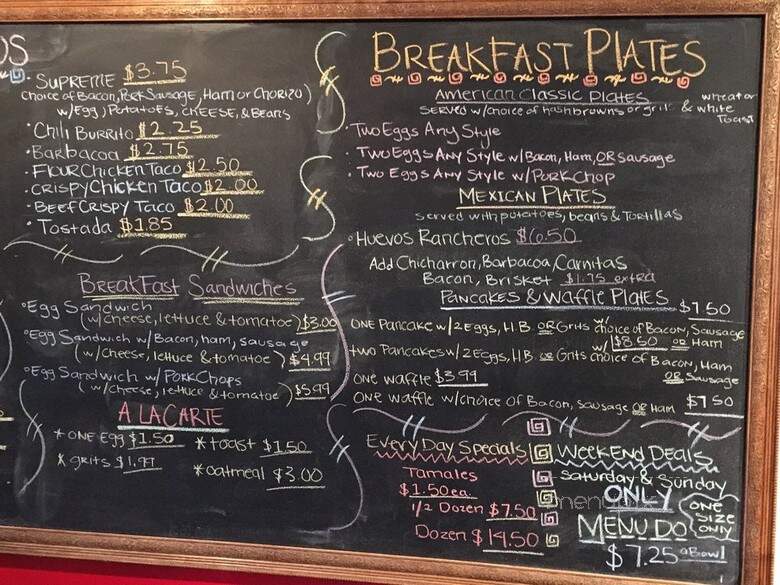 OS
· SUPREME $3.75
Choice of Bacon, Pork Sausage, Ham or Chorizo)
w/Egg, Potatoes, CHEESE, & Beans
· Chili Burrito $2.25
· Barbacoa $2.75
· Flour Chicken Taco $2.50
· CRISPY Chicken Taco $2.00
· BEEF Crispy Taco $2.00
· Tostada $1.85
BreakFast Sandwiches
°Egg Sandwich
(w/cheese, lettuce & tomatoe) $3.00
°Egg Sandwich w/Bacon, ham, sausage
(w/cheese, lettuce & tomatoe) $4.99
°Egg Sandwich w/ PorkChops
(w/cheese, lettuce & tomatoe) $5.99
A LA CARTE
* ONE Egg $1.50 * toast $1.50
* grits $1.97
* oatmeal $3.00
BREAKFAST PLATES
American Classic Plates
SERVED w/choice of hashbrowns or grit & wheat or white Toast
· Two Eggs Any Style
· Two Eggs Any Style w/Bacon, Ham, OR Sausage
· Two Eggs Any Style w/ PORK CHOP
MEXICAN PLATES
served with potatoes, beans & Tortillas
° Huevos Rancheros $6.50
Add Chicharron, Barbacoa, Carnitas
Bacon, Brisket $1.75 extra
Pancakes & Waffle Plates
$7.50
ONE Pancake w/2 Eggs, H.B. OR Grits w/ choice of Bacon, Sausage
w/ $8.50 OR Ham
two Pancakes w/ 2 Eggs, H.B. OR Grits choice of Bacon, Ham
OR Sausage
ONE waffle $3.99
ONE waffle w/choice OF Bacon, sausage OR Ham $7.50
Every Day Specials
Tamales
$1.50 ea.
1/2 Dozen $7.50
Dozen $14.50
WEEKEND DEALS
Saturday & Sunday
ONLY
MENUDO
ONE
SIZE
ONLY
$7.25 a Bowl